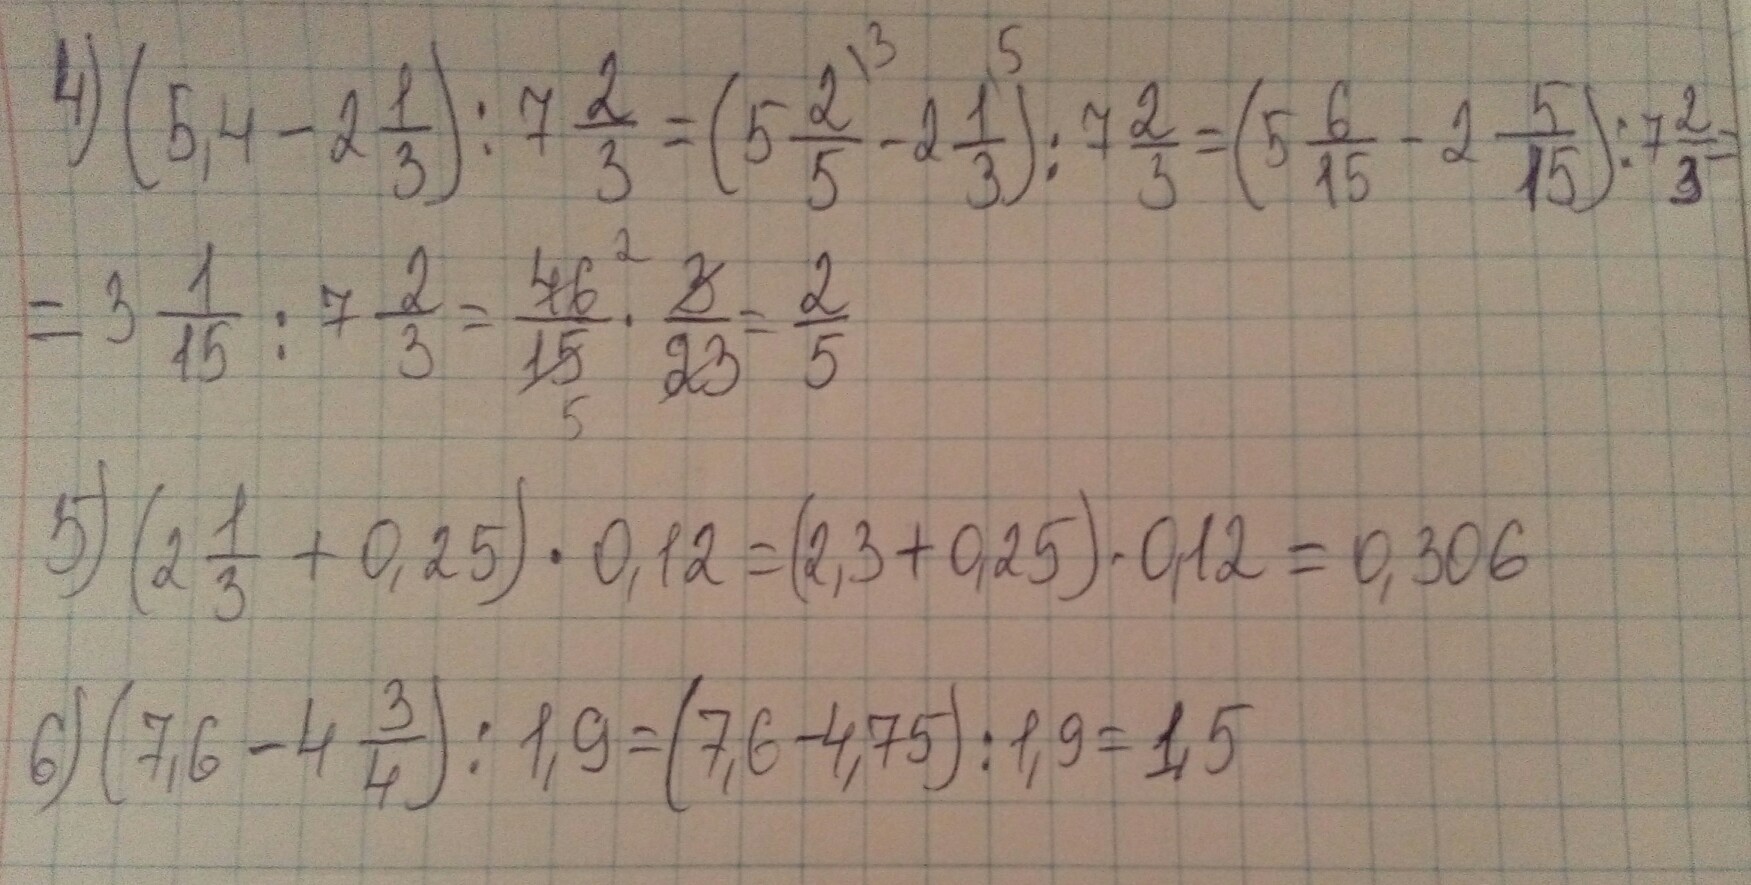 4) (5,4 - 2 1/3) : 7 2/3 = (5 2/5 \3 - 2 1/3 \5) : 7 2/3 = (5 6/15 - 2 5/15) : 7 2/3 =
= 3 1/15 : 7 2/3 = 46/15 2 5 · 3/23 = 2/5
5) (2 1/3 + 0,25) · 0,12 = (2,3 + 0,25) · 0,12 = 0,306
6) (7,6 - 4 3/4) : 1,9 = (7,6 - 4,75) : 1,9 = 1,5